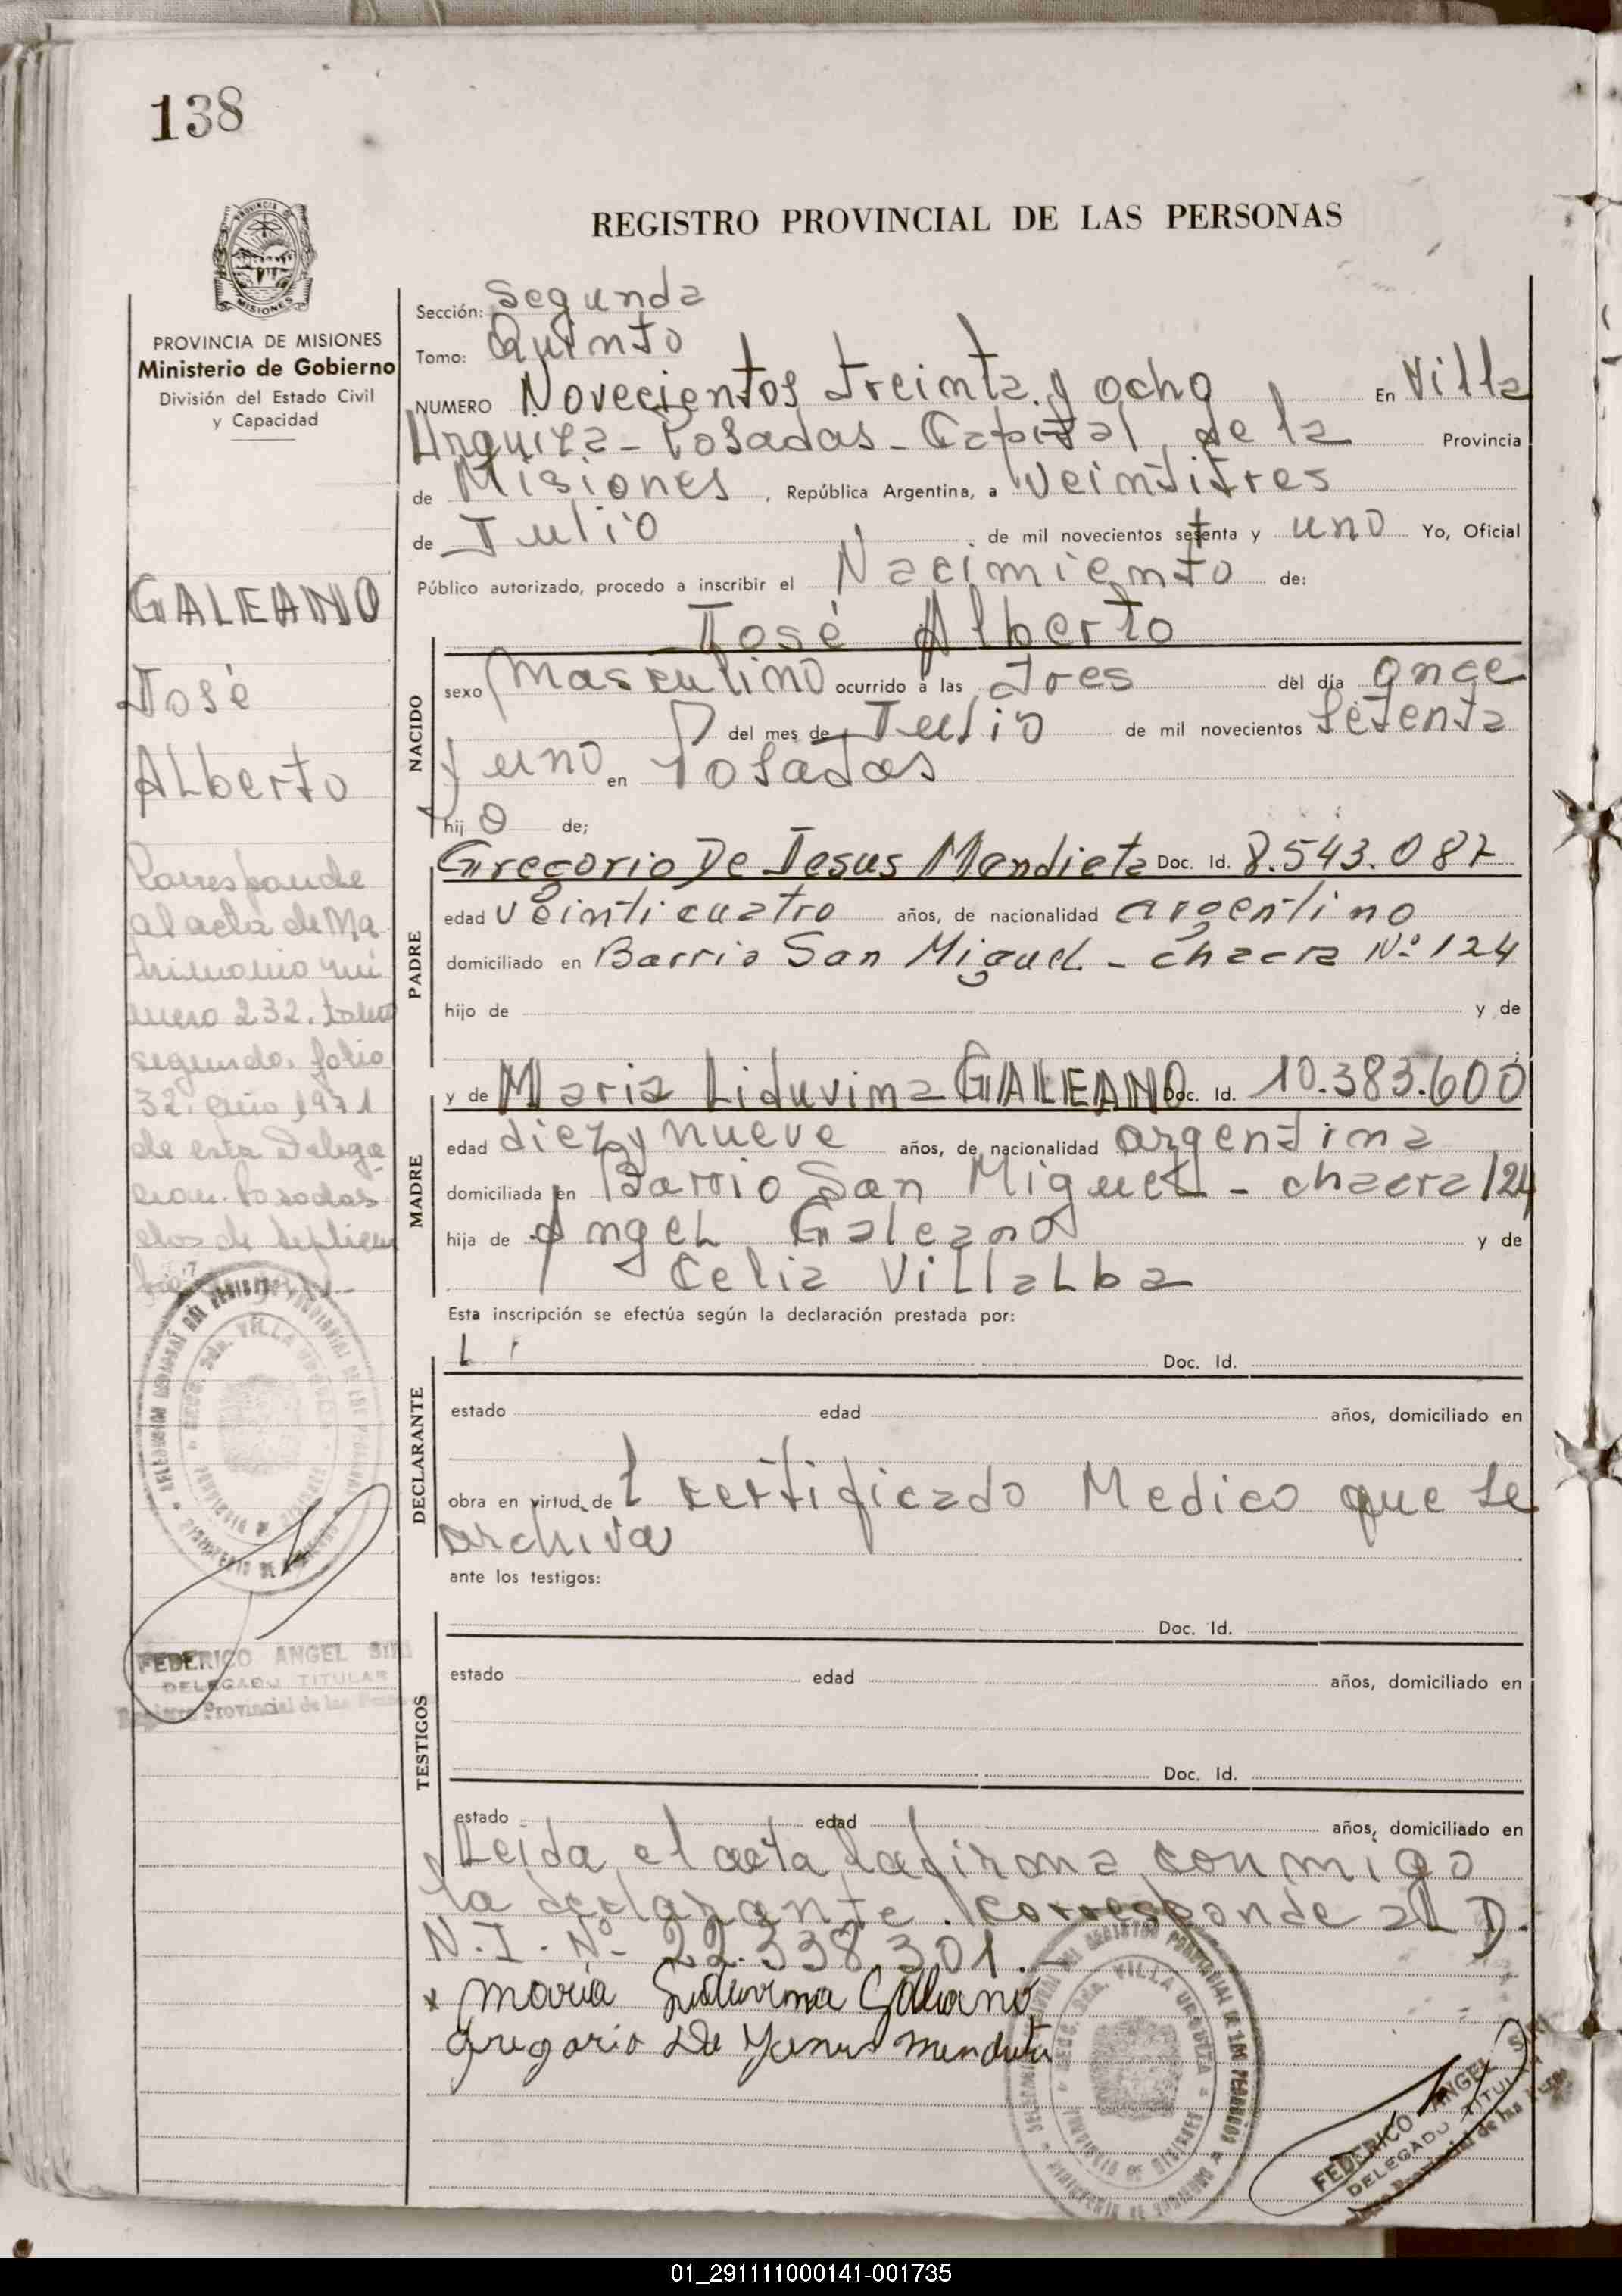 138
REGISTRO PROVINCIAL DE LAS PERSONAS
PROVINCIA DE MISIONES
Ministerio de Gobierno
División del Estado Civil
y Capacidad
Sección: Segunda
Tomo: Quinto
NUMERO Novecientos treinta y ocho En Villa
Urquiza - Posadas - Capital de la Provincia
de Misiones, República Argentina, a veintitres
de Julio de mil novecientos setenta y uno Yo, Oficial
Público autorizado, procedo a inscribir el Nacimiento de:
José Alberto
GALEANO
José
ALberto
NACIDO
sexo Masculino ocurrido a las tres del día once
del mes de Julio de mil novecientos Setenta
y uno en Posadas
hijo de;
PADRE
Gregorio De Jesus Mendieta Doc. Id. 8.543.087
edad veinticuatro años, de nacionalidad argentino
domiciliado en Barrio San Miguel - chacra Nº 124
hijo de y de
MADRE
y de Maria Liduvina GALEANO Doc. Id. 10.383.600
edad diez y nueve años, de nacionalidad argentina
domiciliada en Barrio San Miguel - chacra 124
hija de Angel Galeano y de
Celia ViLLaLba
Corresponde
al acta de Ma
trimonio nú
mero 232. tomo
segundo. folio
32. año 1971
de esta Delega
cion. Posadas
dos de Septiem
Esta inscripción se efectúa según la declaración prestada por:
DECLARANTE
Doc. Id.
estado edad años, domiciliado en
obra en virtud de l certificado Medico que se
archiva
ante los testigos:
TESTIGOS
Doc. Id.
estado edad años, domiciliado en
Doc. Id.
estado edad años, domiciliado en
Leida el acta la firma conmigo
la declarante. Corresponde al D.
N.I. Nº 22.338.301.
x Maria Liduvina Galeano
Gregorio De Jesus Mendieta
FEDERICO ANGEL
DELEGADO TITULAR
Registro Provincial de las
FEDERICO ANGEL
DELEGADO TITULAR
Provincial de las
01_291111000141-001735